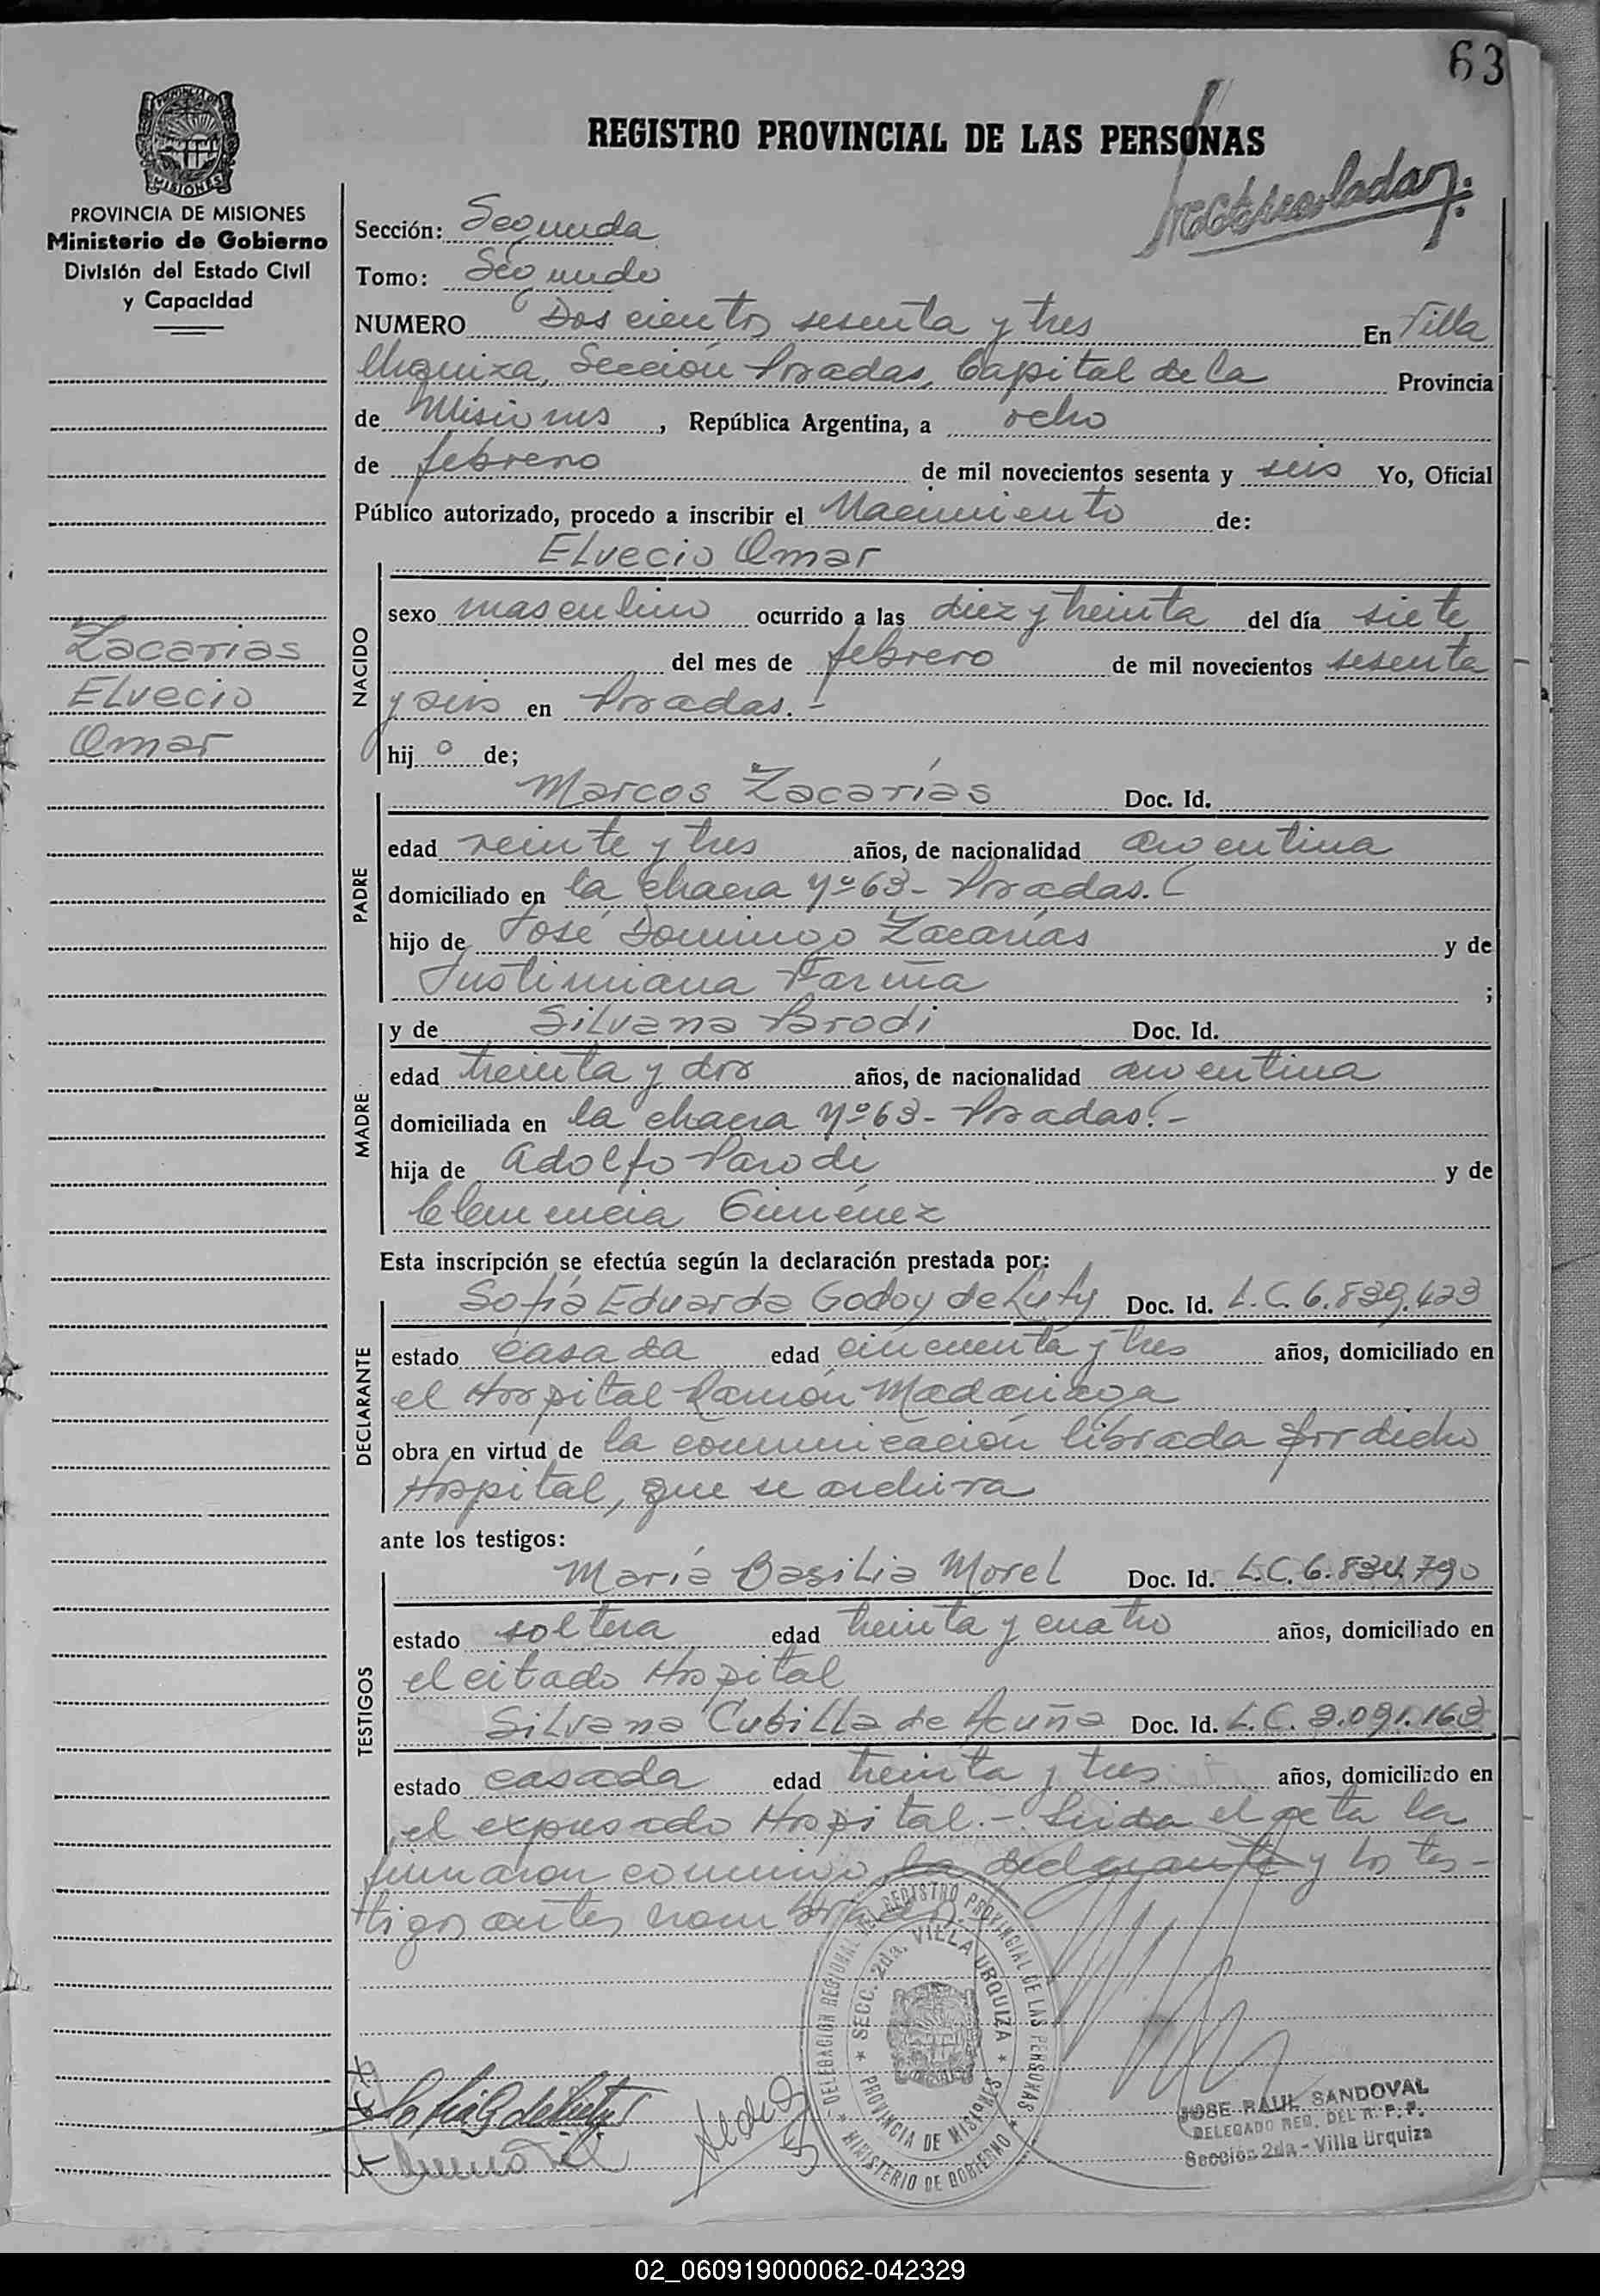 63
REGISTRO PROVINCIAL DE LAS PERSONAS
MISIONES
PROVINCIA DE MISIONES
Ministerio de Gobierno
División del Estado Civil
y Capacidad
Sección: Segunda
Tomo: Segundo
NUMERO Doscientos sesenta y tres En Villa
Urquiza, Sección Posadas, Capital de la Provincia
de Misiones, República Argentina, a ocho
de febrero de mil novecientos sesenta y seis Yo, Oficial
Público autorizado, procedo a inscribir el Nacimiento de:
Elvecio Omar
Zacarías
Elvecio
Omar
NACIDO
sexo masculino ocurrido a las diez y treinta del día siete
del mes de febrero de mil novecientos sesenta
y seis en Posadas.-
hij o de;
PADRE
Marcos Zacarías Doc. Id.
edad veinte y tres años, de nacionalidad argentina
domiciliado en la chacra Nº 63- Posadas.
hijo de José Domingo Zacarías y de
Justiniana Fariña ;
MADRE
y de Silvana Parodi Doc. Id.
edad treinta y dos años, de nacionalidad argentina
domiciliada en la chacra Nº 63- Posadas.-
hija de Adolfo Parodi y de
Clemencia Giménez
Esta inscripción se efectúa según la declaración prestada por:
DECLARANTE
Sofía Eduarda Godoy de Luty Doc. Id. L.C. 6.839.423
estado casada edad cincuenta y tres años, domiciliado en
el Hospital Ramón Madariaga
obra en virtud de la comunicación librada por dicho
Hospital, que se archiva
ante los testigos:
TESTIGOS
María Basilia Morel Doc. Id. L.C. 6.834.790
estado soltera edad treinta y cuatro años, domiciliado en
el citado Hospital
Silvana Cubilla de Acuña Doc. Id. L.C. 9.091.163
estado casada edad treinta y tres años, domiciliado en
el expresado Hospital.- Leida el acta la
firmaron conmigo, la declarante y los tes-
tigos antes nombrados.-
DELEGACION REGIONAL DEL REGISTRO PROVINCIAL DE LAS PERSONAS
SECC. 2da. VILLA URQUIZA
PROVINCIA DE MISIONES
MINISTERIO DE GOBIERNO
Sofia G de Luty
JOSE RAUL SANDOVAL
DELEGADO REG. DEL R. P. P.
Sección 2da - Villa Urquiza
02_060919000062-042329